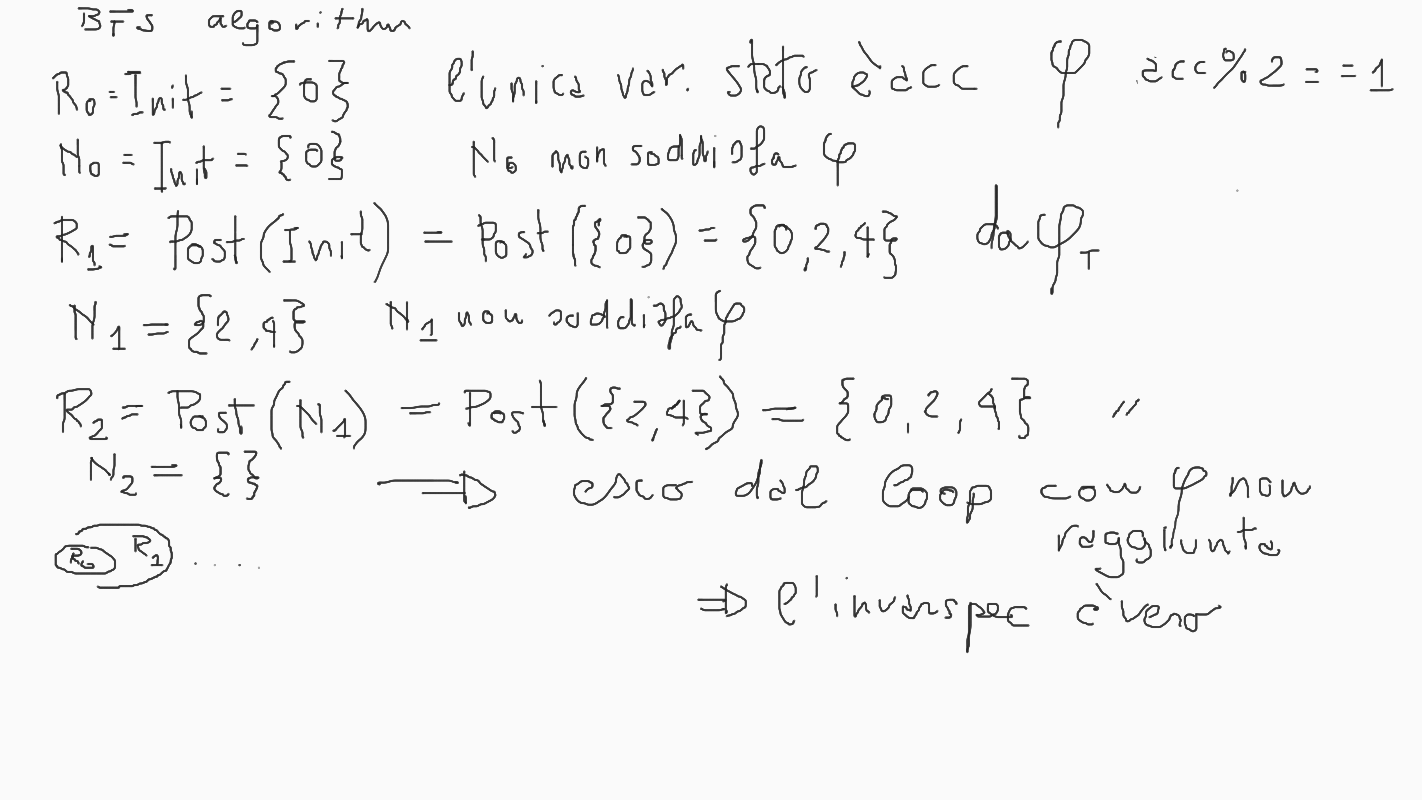 BFS algorithm
R₀ = Init = {0} l'unica var. stato è acc φ acc%2 == 1
N₀ = Init = {0} N₀ non soddisfa φ
R₁ = Post(Init) = Post({0}) = {0,2,4} da φ_T
N₁ = {2,4} N₁ non soddisfa φ
R₂ = Post(N₁) = Post({2,4}) = {0,2,4} "
N₂ = {} ⇒ esco dal loop con φ non
raggiunta
R₀ R₁ ....
⇒ l'invarspec è vero